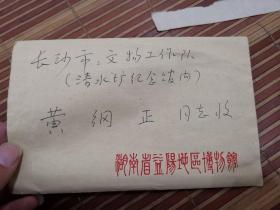 长沙市:文物工作队
(清水圹纪念馆内)
黄纲正同志收
湖南省益阳地区博物館